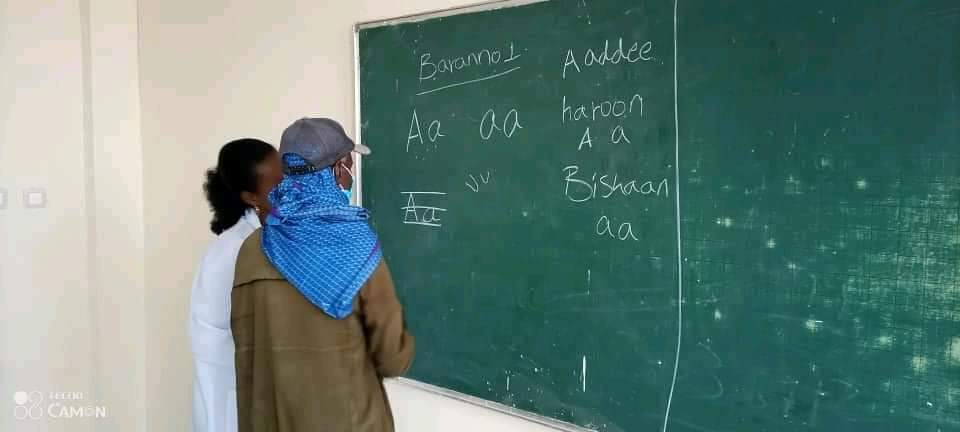 Baranno 1
Aa aa
Aa
Aaddee
haroon
A a
Bishaan
aa
TECNO
CAMON